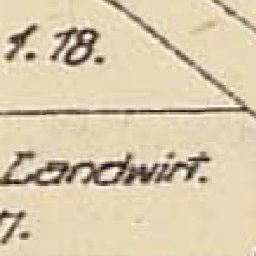 1.18.
Landwirt.